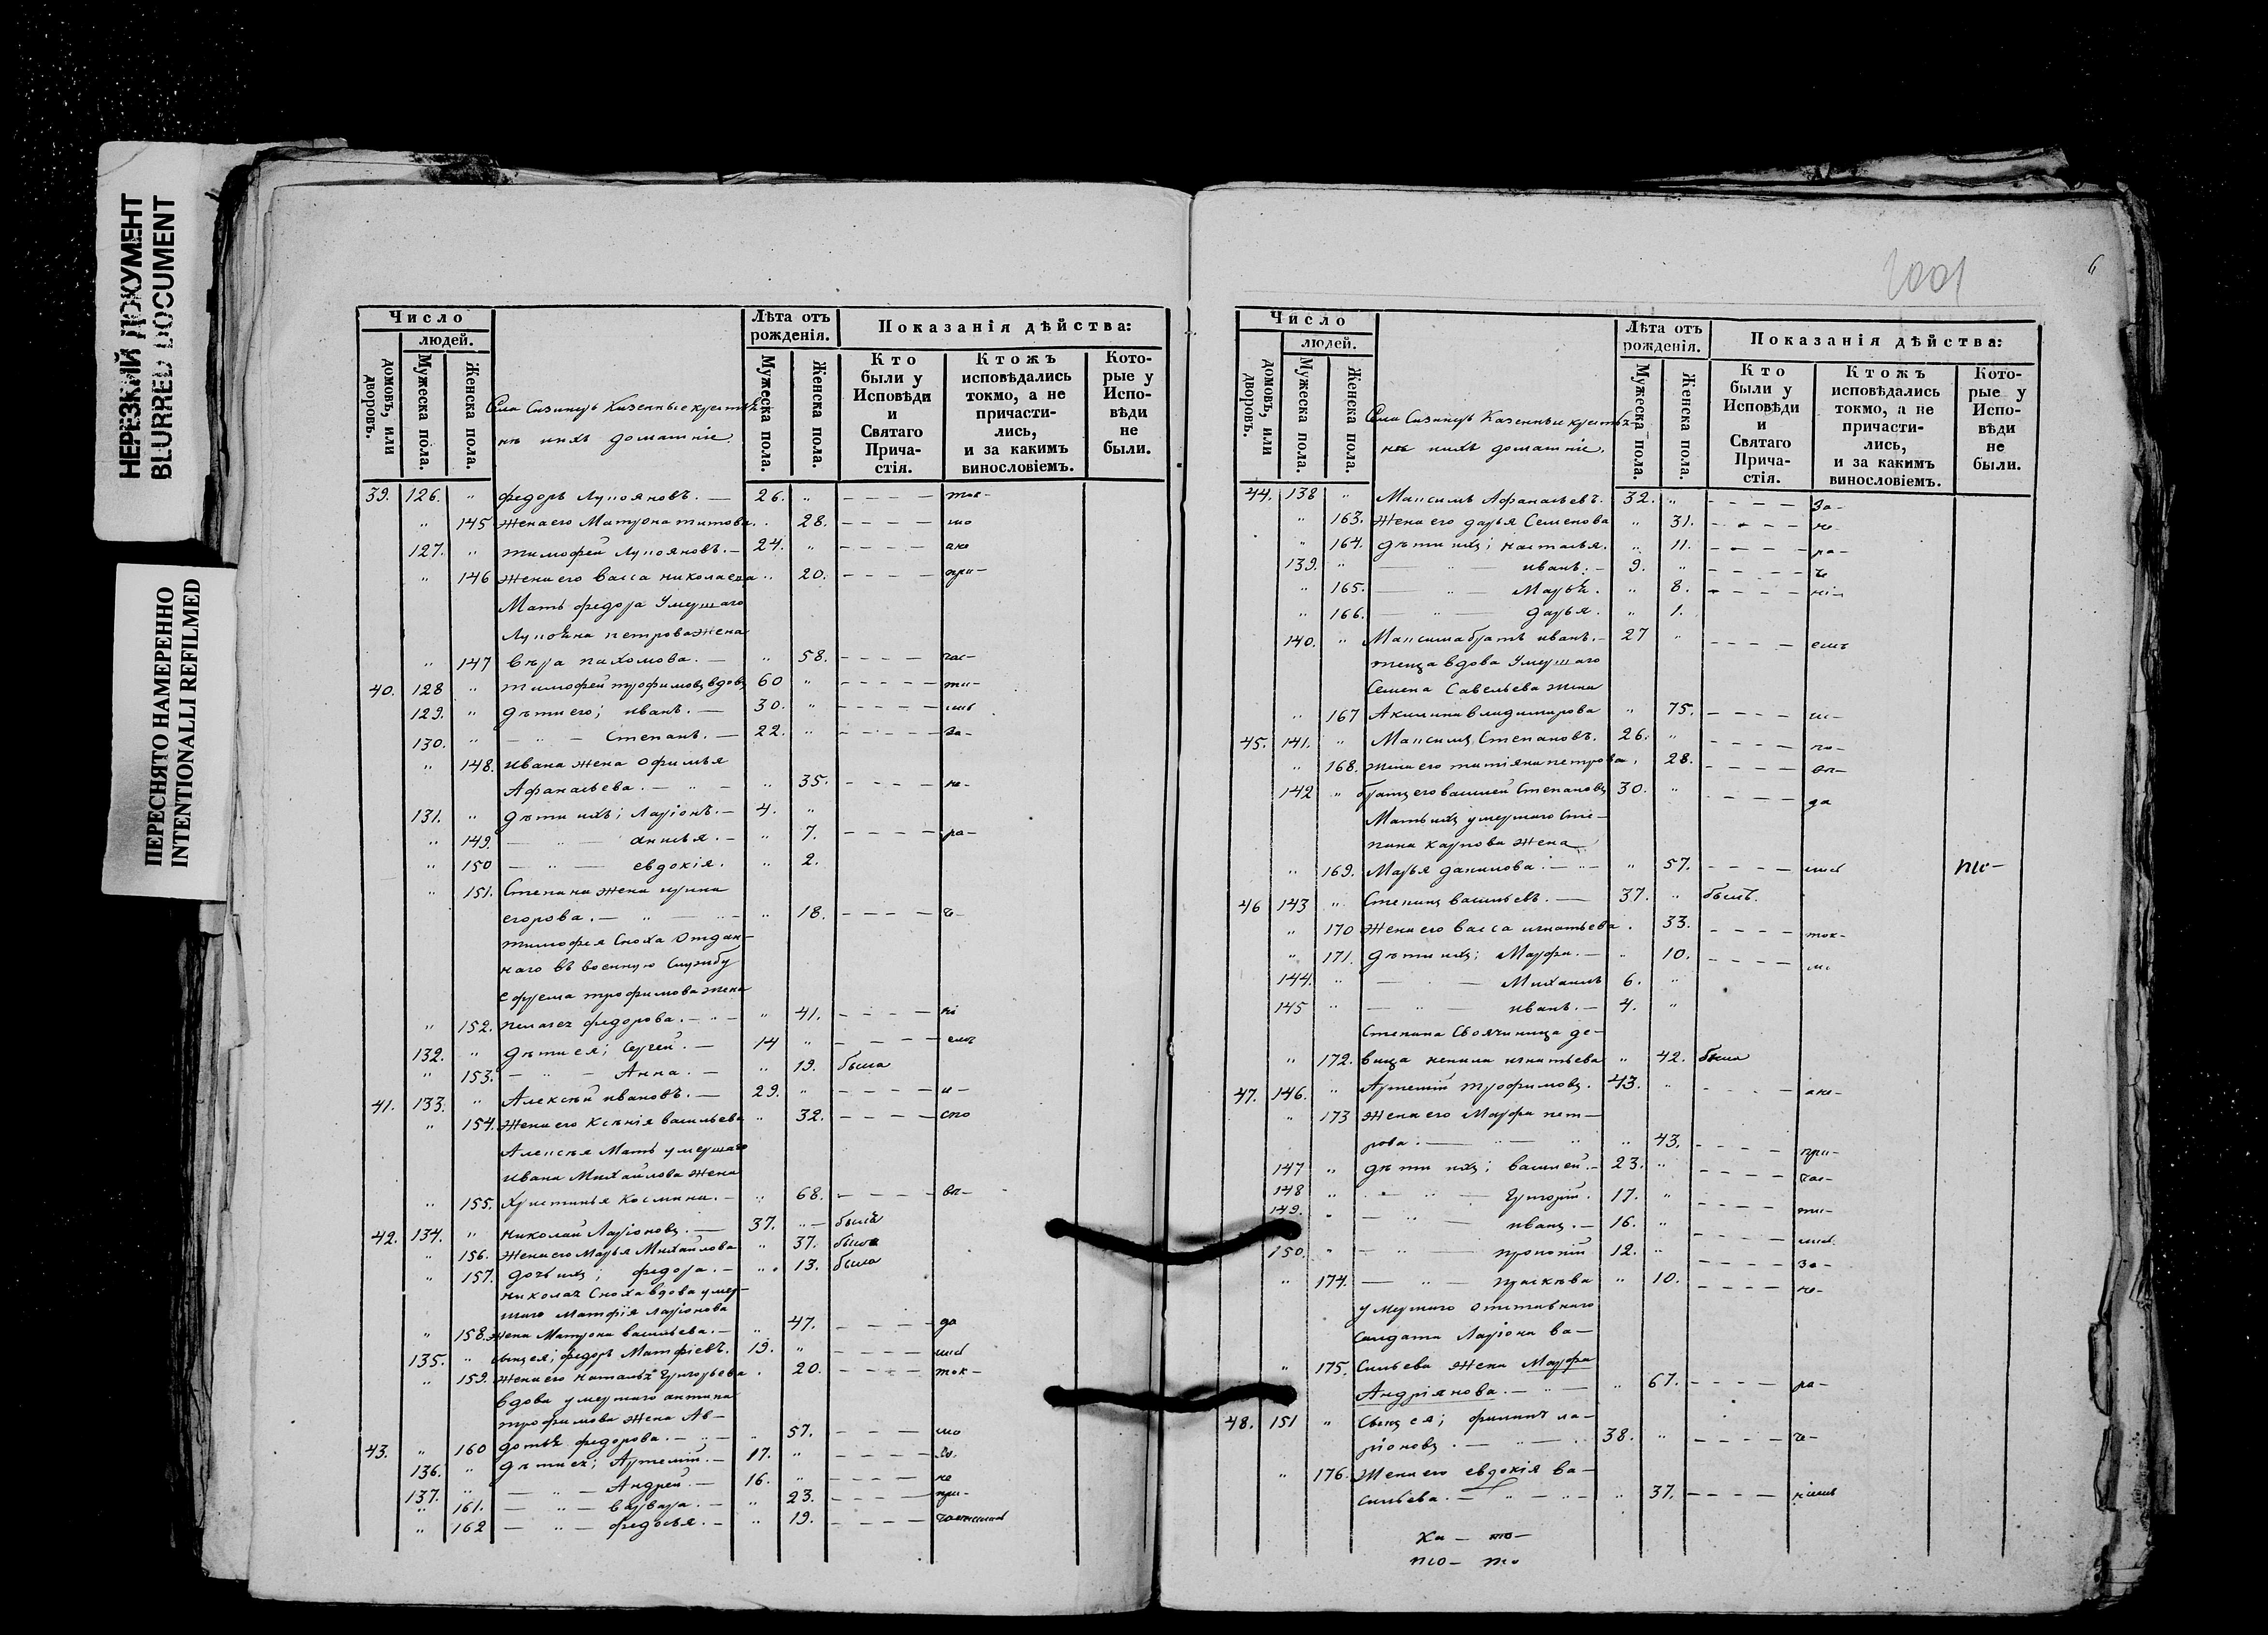 НЕРЕЗКИЙ ДОКУМЕНТ
BLURRED DOCUMENT
ПЕРЕСНЯТО НАМЕРЕННО
INTENTIONALLI REFILMED
Число
людей.
домовъ, или дворовъ.
Мужеска пола.
Женска пола.
Села Казенные
них домашніе
Лѣта отъ рожденія.
Мужеска пола.
Женска пола.
Показанія дѣйства:
Кто были у Исповѣди и Святаго Прича-стія.
Ктожъ исповѣдались токмо, а не причасти-лись, и за какимъ винословіемъ.
Кото-рые у Испо-вѣди не были.
39. 126. " федоръ Лупояновъ. — 26. " – – – – ток-
" 145 жена его Матрона титова. . 28. – – – – мо
127. " тимофей Лупояновъ. – 24. " – – – – ане
" 146 жена его васса николаева " 20. – – – – при-
Мать федора Умершаго
петрова жена
" 147 вѣра пахомова. — " 58. – – – – час-
40. 128 " тимофей трофимовъ вдовъ 60 " – – – – ти-
129. " дѣти его; иванъ. — 30. " – – – –
130. " — " — Степанъ. — 22. " – – – – За-
" 148. ивана жена офимья
Афанасьева. — " — " 35. – – – – не-
131. " дѣти ихъ; Ларіонъ. — 4. "
" 149. — " — анисья. — " 7. – – – – ра-
" 150 — " — евдокія. " 2.
" 151. Степана жена ирина
егорова. — " — " 18. – – – – ч-
тимофея Сноха Отдан-
наго въ военную Службу
ефрема трофимова жена
" 152. пелагея федорова. — " — " 41. – – – – ні
132. " дѣти ея; Сергей. — 14 " – – – – емъ
" 153. — " — Анна. — " 19. была
41. 133. " Алексѣй ивановъ. — 29. " – – – – и-
" 154. жена его Ксѣнія васильева " 32. – – – – спо
Алексѣя Мать умершаго
ивана Михайлова жена
" 155. Христинья Космина. — " 68. – – – – вѣ-
42. 134. " николай Ларіоновъ. — 37. " былъ
" 156. жена его Марья Михайлова " 37. была
" 157. дочь ихъ; федора. — " 13. была
николая Сноха вдова умер-
шаго Матфія ларіонова
" 158. жена Матрона васильева. — " 47. – – – – да
135. " сынъ ея; федоръ Матфіевъ. 19. " – – – –
" 159. жена его наталья Григорьева . 20. – – – – ток-
вдова умершаго антипа
трофимова жена Ав-
43. " 160 дотья федорова. — " — " 57. – – – мо
136. " дѣти ея; Артемій. — 17. " – – – –
137. " — " — Андрей. — 16. " – – – – не
" 161. — " — варвара. — " 23. – – – – при-
" 162 — " — федосья. — " 19. – – – –
2001
6
Число
людей.
домовъ, или дворовъ.
Мужеска пола.
Женска пола.
Села Казенные
них домашніе.
Лѣта отъ рожденія.
Мужеска пола.
Женска пола.
Показанія дѣйства:
Кто были у Исповѣди и Святаго Прича-стія.
Ктожъ исповѣдались токмо, а не причасти-лись, и за какимъ винословіемъ.
Кото-рые у Испо-вѣди не были.
44. 138 " Максимъ Афанасьевъ. 32. " – – – – За-
" 163. жена его дарья Семенова " 31. – – – – не-
" 164. дѣти ихъ; настасья. " 11. – – – – ра-
139. " — " — иванъ. — 9. " – – – – че
" 165. — " — Марья. " 8. – – – – ні-
" 166. — " — дарья. " 1.
140. " Максима братъ иванъ. — 27 " – – – – емъ
теща вдова Умершаго
Семена Савельева жена
" 167 Акилина владимирова " 75. – – – –
45. 141. " Максимъ Степановъ. 26. " – – – –
" 168. жена его татіяна петрова. 28. – – – –
142 " братъ его василей Степановъ 30. " – – – – да
Мать ихъ умершаго Сте-
пана карпова жена
" 169. Марья данилова. — " — " 57. – – – –
46 143 " Степанъ васильевъ. — 37. " былъ.
" 170 жена его васса игнатьева . 33. – – – – ток-
" 171. дѣти ихъ; Марфа. — " 10. – – – –
144. " — " — Михаилъ 6. "
145 " — " — иванъ. — 4. "
Степана Своячиница де-
" 172. вица ненила игнатьева " 42. была
47. 146. " Артемій трофимовъ. 43. " – – – – ане-
" 173 жена его Марфа пет-
рова. — " — " " 43. – – – – при-
147 " дѣти ихъ; василей. — 23. " – – – – час-
148 " — " — Григорій. 17. " – – – – ти-
149. " — " — иванъ. — 16. " – – – –
150. " — " — прокопій 12. " – – – – За-
" 174. — " — праскѣва " 10. – – – – не-
умершаго отставнаго
Салдата Ларіона ва-
" 175. сильева жена Марфа
Андріянова. — " — " 67. – – – – ра-
48. 151 " Сынъ ея; филипъ ла-
ріоновъ. — " — 38. " – – – – че-
" 176. Жена его евдокія ва-
сильева. — " — " 37. – – – –